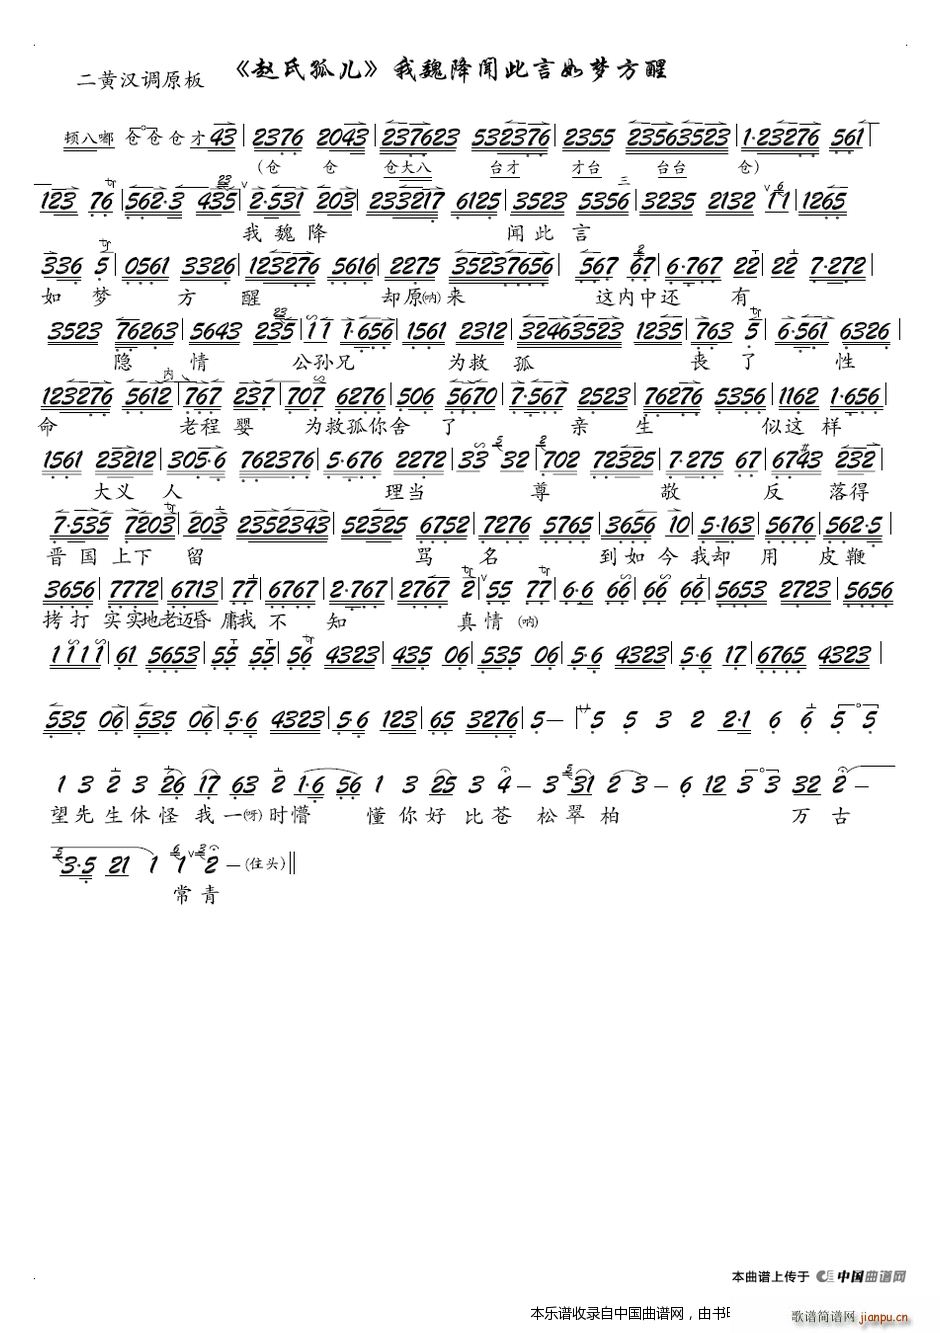 《赵氏孤儿》我魏降闻此言如梦方醒
二黄汉调原板
顿八嘟 仓仓仓才 43 | 2376 2043 | 237623 532376 | 2355 23563523 | 1·23276 561 |
(仓 仓 仓大八 台才 才台 台台 仓)
123 76 | 562·3 435 | 2·531 203 | 233217 6125 | 3523 5356 | 3235 2132 11 | 1265
我魏降 闻此言
336 5 | 0561 3326 | 123276 5616 | 2275 35237656 | 567 67 | 6·767 22 | 22 7·272 |
如梦方醒 却原(呐)来 这内中还有
3523 76263 | 5643 235 | 11 1·656 | 1561 2312 | 32463523 1235 | 763 5 | 6·561 6326 |
隐情 公孙兄 为救孤 丧了性
123276 5612 | 767 237 | 707 6276 | 506 5670 | 7·567 2523 | 76276 5356 | 1162 1·656 |
命 老程婴 为救孤你舍了亲生 似这样
1561 23212 | 305·6 762376 | 5·676 2272 | 33 32 | 702 72325 | 7·275 67 | 6743 232 |
大义人 理当尊敬反落得
7·535 7203 | 203 2352343 | 52325 6752 | 7276 5765 | 3656 10 | 5·163 | 5676 | 562·5 |
晋国上下留骂名 到如今我却用皮鞭
3656 | 7772 | 6713 | 77 | 6767 | 2·767 | 2767 2 | 55 77 | 6·6 66 | 66 66 | 5653 2723 | 5656
拷打实实地老迈昏庸我不知真情(呐)
1111 | 61 5653 | 55 55 | 56 4323 | 435 06 | 535 06 | 5·6 4323 | 5·6 17 | 6765 4323 |
535 06 | 535 06 | 5·6 4323 | 5·6 123 | 65 3276 | 5— | 5 5 3 2 2·1 6 6 5 5
1 3 2 3 26 17 63 2 1·6 56 1 3 25 3 4— 3 31 2 3— 6 12 3 3 32 2—
望先生休怪我一(呀)时懵懂你好比苍松翠柏万古
3·5 21 1 1 2 —(住头)‖
常青
本曲谱上传于 中国曲谱网
本乐谱收录自中国曲谱网，由书
歌谱简谱网 jianpu.cn